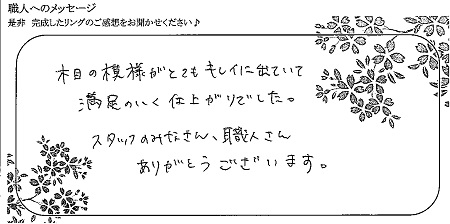 職人へのメッセージ
是非 完成したリングのご感想をお聞かせください♪
木目の模様がとてもキレイに出ていて
満足のいく仕上がりでした。
スタッフのみなさん、職人さん
ありがとうございます。